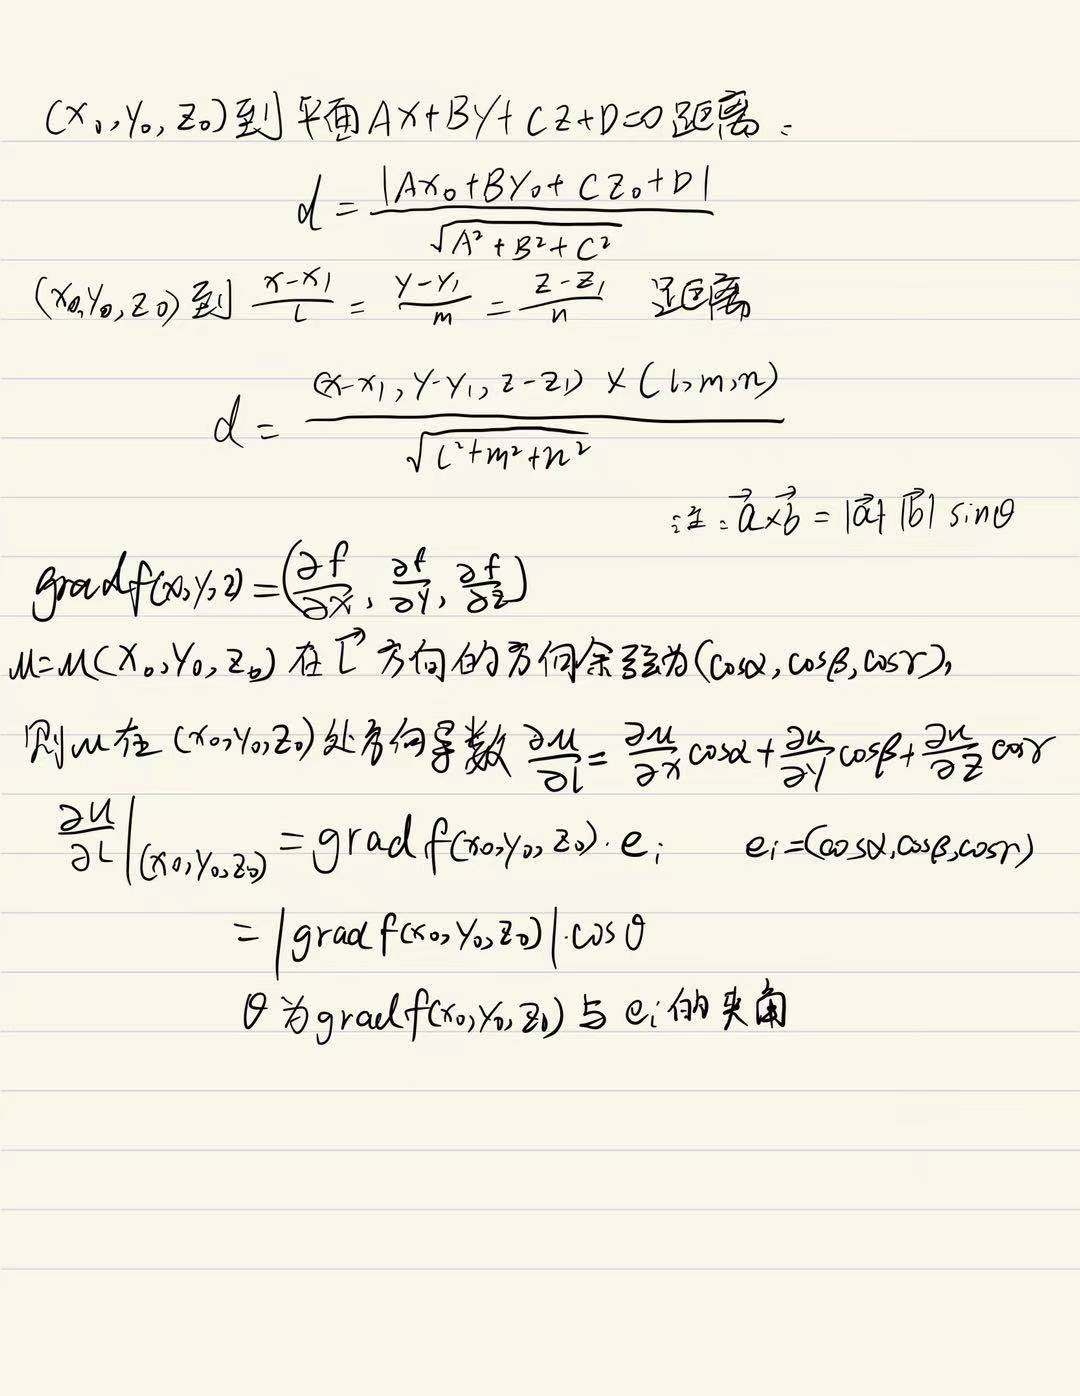 (x₀,y₀,z₀)到平面Ax+By+Cz+D=0距离:
d = |Ax₀+By₀+Cz₀+D| / √(A²+B²+C²)
(x₀,y₀,z₀)到 (x-x₁)/l = (y-y₁)/m = (z-z₁)/n 距离
d = (x-x₁,y-y₁,z-z₁)×(l,m,n) / √(l²+m²+n²)
注:a⃗×b⃗ = |a⃗| |b⃗| sinθ
gradf(x,y,z)=(∂f/∂x, ∂f/∂y, ∂f/∂z)
u=u(x₀,y₀,z₀)在l⃗方向的方向余弦为(cosα,cosβ,cosγ),
则u在(x₀,y₀,z₀)处方向导数 ∂u/∂l = ∂u/∂x cosα + ∂u/∂y cosβ + ∂u/∂z cosγ
∂u/∂l |(x₀,y₀,z₀) = gradf(x₀,y₀,z₀)·eᵢ eᵢ=(cosα,cosβ,cosγ)
= |gradf(x₀,y₀,z₀)|·cosθ
θ为gradf(x₀,y₀,z₀)与eᵢ的夹角